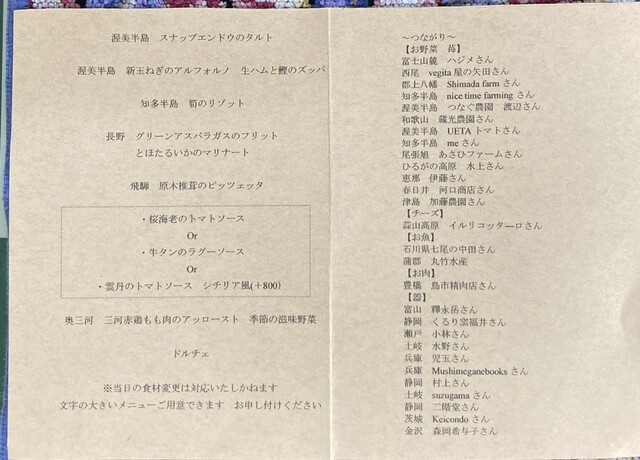 渥美半島　スナップエンドウのタルト
渥美半島　新玉ねぎのアルフォルノ　生ハムと鰹のズッパ
知多半島　筍のリゾット
長野　グリーンアスパラガスのフリット
とほたるいかのマリナート
飛騨　原木椎茸のピッツェッタ
・桜海老のトマトソース
Or
・牛タンのラグーソース
Or
・雲丹のトマトソース　シチリア風(＋800)
奥三河　三河赤鶏もも肉のアッロースト　季節の滋味野菜
ドルチェ
※当日の食材変更は対応いたしかねます
文字の大きいメニューご用意できます　お申し付けください
～つながり～
【お野菜　苺】
富士山麓　ハジメさん
西尾　vegita 屋の矢田さん
郡上八幡　Shimada farm さん
知多半島　nice time farming さん
渥美半島　つなぐ農園　渡辺さん
和歌山　蔵光農園さん
渥美半島　UETA トマトさん
知多半島　me さん
尾張旭　あさひファームさん
ひるがの高原　水上さん
恵那　伊藤さん
春日井　河口商店さん
津島　加藤農園さん
【チーズ】
蒜山高原　イルリコッターロさん
【お魚】
石川県七尾の中田さん
蒲郡　丸竹水産
【お肉】
豊橋　鳥市精肉店さん
【器】
富山　釋永岳さん
静岡　くるり窯福井さん
瀬戸　小林さん
土岐　水野さん
兵庫　児玉さん
兵庫　Mushimeganebooks さん
静岡　村上さん
土岐　suzugama さん
静岡　二階堂さん
茨城　Keicondo さん
金沢　森岡希与子さん